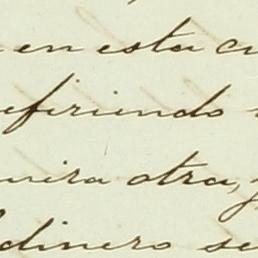 en esta cu
efiriendo
uira otra, y
dinero se